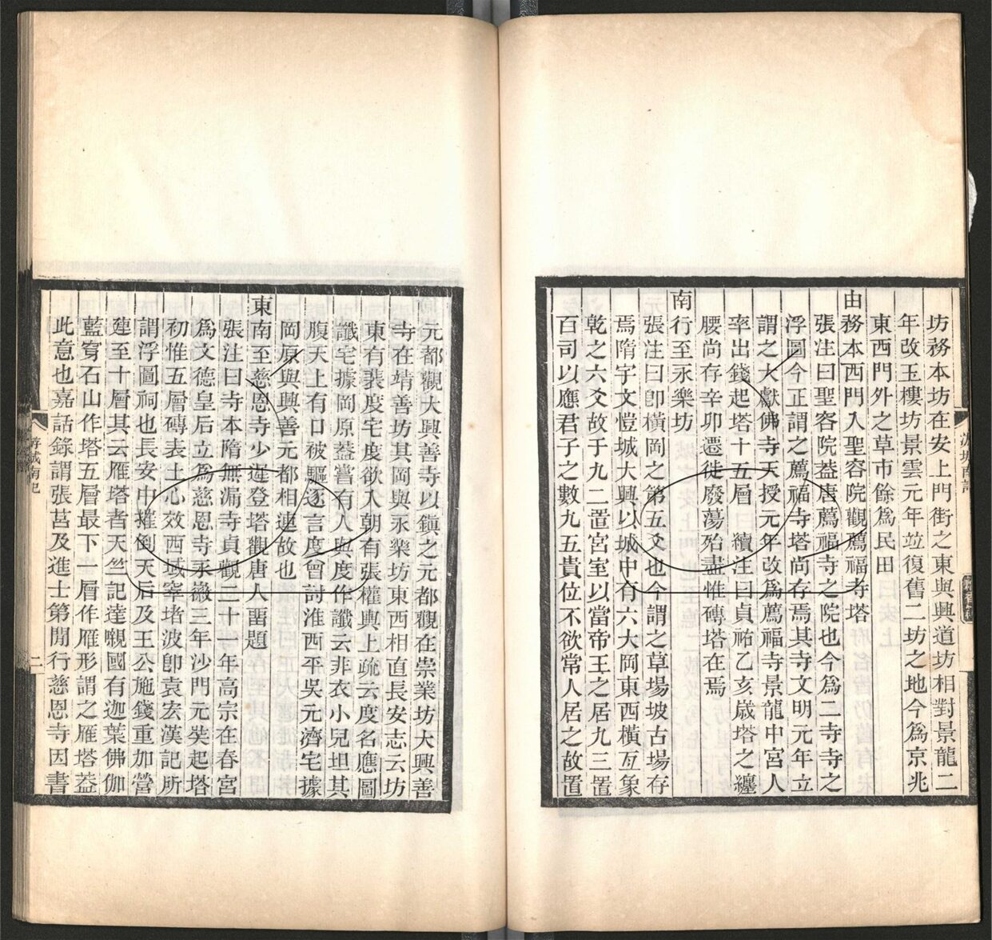 坊務本坊在安上門街之東與興道坊相對景龍二
年改玉樓坊景雲元年竝復舊二坊之地今爲京兆
東西門外之草市餘爲民田
由務本西門入聖容院觀薦福寺塔
張注曰聖容院葢唐薦福寺之院也今爲二寺寺之
浮圖今正謂之薦福寺塔尚存焉其寺文明元年立
謂之大獻佛寺天授元年改爲薦福寺景龍中宮人
率出錢起塔十五層 續注曰貞祐乙亥歲塔之纏
腰尚存辛卯遷徙廢蕩殆盡惟磚塔在焉
南行至永樂坊
張注曰卽橫岡之第五爻也今謂之草場坡古場存
焉隋宇文愷城大興以城中有六大岡東西橫亙象
乾之六爻故于九二置宮室以當帝王之居九三置
百司以應君子之數九五貴位不欲常人居之故置
元都觀大興善寺以鎮之元都觀在崇業坊大興善
寺在靖善坊其岡與永樂坊東西相直長安志云坊
東有裴度宅度欲入朝有張權輿上疏云度名應圖
讖宅據岡原葢嘗有人與度作讖云非衣小兒坦其
腹天上有口被驅逐言度曾討淮西平吳元濟宅據
岡原與興善元都相連故也
東南至慈恩寺少遲登塔觀唐人畱題
張注曰寺本隋無漏寺貞觀二十一年高宗在春宮
爲文德皇后立爲慈恩寺永徽三年沙門元奘起塔
初惟五層磚表土心效西域窣堵波卽袁宏漢記所
謂浮圖祠也長安中摧倒天后及王公施錢重加營
建至十層其云雁塔者天竺記達嚫國有迦葉佛伽
藍穿石山作塔五層最下一層作雁形謂之雁塔葢
此意也嘉話錄謂張莒及進士第閒行慈恩寺因書
游城南記
二